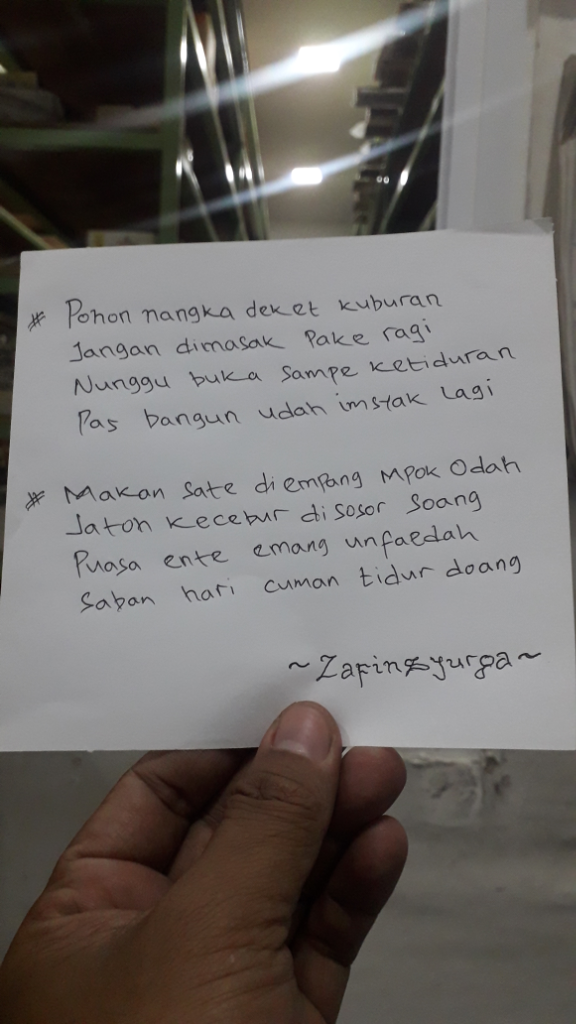 # Pohon nangka deket kuburan
Jangan dimasak Pake ragi
Nunggu buka sampe ketiduran
Pas bangun udah imsyak lagi
# Makan sate diempang Mpok Odah
Jatoh kecebur disosor soang
Puasa ente emang unfaedah
Saban hari cuman tidur doang
~Zafinsyurga~